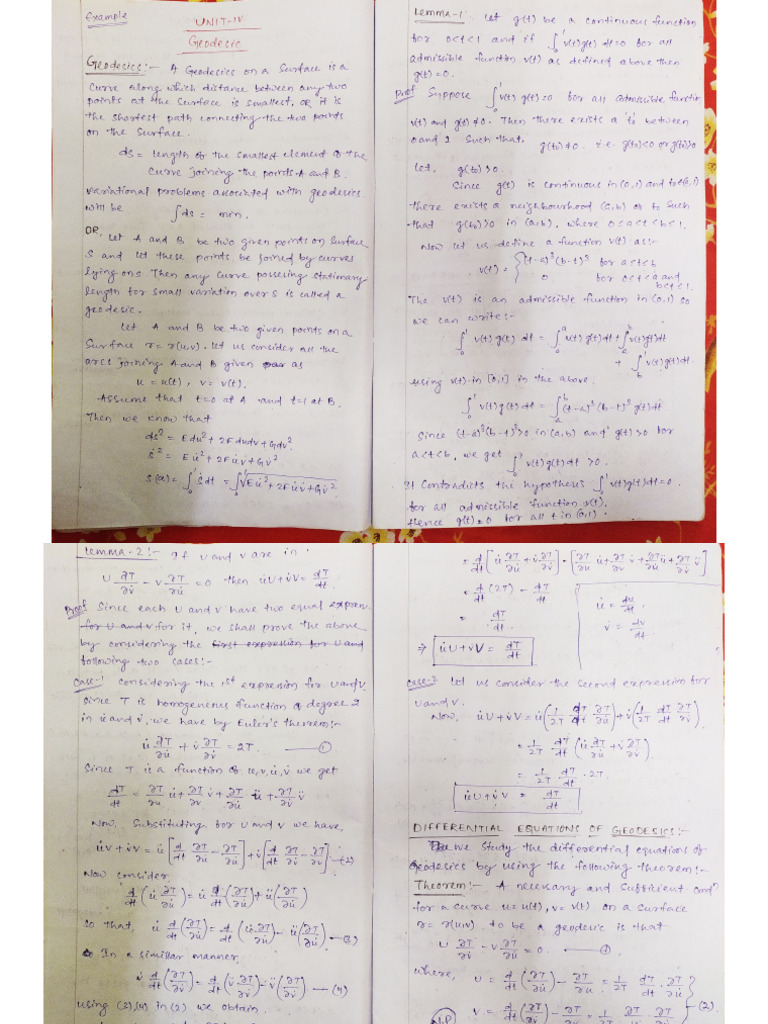 Example
UNIT-IV
Geodesic
Geodesics:- A Geodesics on a Surface is a
Curve along which distance between any two
points at the Surface is smallest, OR it is
the shortest path connecting the two points
on the Surface.
ds = length of the smallest element of the
Curve joining the points A and B.
variational problems associated with geodesics
will be ∫ds = min.
OR, Let A and B be two given points on Surface
S and let these points be joined by curves
lying on S. Then any curve possesing stationary
length for small variation over S is called a
geodesic.
Let A and B be two given points on a
Surface r = r(u,v). let us consider all the
arcs joining A and B given as
u = u(t), v = v(t).
Assume that t=0 at A and t=1 at B.
Then we know that
ds² = Edu² + 2Fdudv + Gdv²
ṡ² = Eu̇² + 2Fu̇v̇ + Gv̇²
S(α) = ∫₀¹ ṡdt = ∫₀¹ √Eu̇² + 2Fu̇v̇ + Gv̇²
Lemma-1: Let g(t) be a continuous function
for 0<t<1 and if ∫₀¹ v(t)g(t) dt=0 for all
admissible function v(t) as defined above then
g(t)=0.
Proof Suppose ∫₀¹ v(t) g(t)=0 for all admissible function
v(t) and g(t)≠0. Then there exists a 'to' between
0 and 1 Such that, g(to)≠0 i.e. g(to)<0 or g(to)>0
let, g(to)>0.
Since g(t) is continuous in (0,1) and to∈(0,1)
there exists a neighbourhood (a,b) of to such
that g(to)>0 in (a,b), where 0≤a<t<b<1.
Now let us define a function v(t) as:-
v(t) = { (t-a)³(b-t)³ for a<t<b
0 for 0<t<a and
b<t<1.
The v(t) is an admissible function in (0,1) so
we can write:-
∫₀¹ v(t)g(t) dt = ∫₀ᵃ v(t) g(t)dt + ∫ₐᵇ v(t)g(t)dt
+ ∫_b¹ v(t)g(t)dt.
using v(t) in [0,1] in the above,
∫₀¹ v(t)g(t) dt = ∫ₐᵇ (t-a)³(b-t)³ g(t)dt
Since (t-a)³(b-t)³>0 in (a,b) and g(t)>0 for
a<t<b, we get ∫₀¹ v(t)g(t)dt >0.
It Contradicts the hypothesis ∫₀¹ v(t)g(t)dt=0.
for all admissible function v(t).
Hence g(t)=0 for all t in (0,1).
Lemma-2:- If U and V are in
U ∂T/∂v̇ - V ∂T/∂u̇ = 0 then u̇U+v̇V = dT/dt
Proof Since each U and V have two equal expren.
for U and V for it, we shall prove the above
by considering the first expression for U and
following two cases:-
Case-1 Considering the 1st expression for U and V.
Since T is homogeneous function of degree 2
in u̇ and v̇. we have by Euler's theorem:-
u̇ ∂T/∂u̇ + v̇ ∂T/∂v̇ = 2T. — (1)
Since T is a function of u,v,u̇,v̇ we get
dT/dt = ∂T/∂u u̇ + ∂T/∂v v̇ + ∂T/∂u̇ ü + ∂T/∂v̇ v̈
Now, Substituting for U and V we have,
u̇U + v̇V = u̇[d/dt ∂T/∂u̇ - ∂T/∂u] + v̇[d/dt ∂T/∂v̇ - ∂T/∂v] — (2)
Now consider
d/dt (u̇ ∂T/∂u̇) = u̇ d/dt (∂T/∂u̇) + ü(∂T/∂u̇)
So that, u̇ d/dt (∂T/∂u̇) = d/dt (u̇ ∂T/∂u̇) - ü(∂T/∂u̇) — (3)
In a simillar manner,
v̇ d/dt (∂T/∂v̇) = d/dt (v̇ ∂T/∂v̇) - v̈(∂T/∂v̇) — (4)
using (3),(4) in (2) we obtain.
= d/dt [u̇ ∂T/∂u̇ + v̇ ∂T/∂v̇] - [∂T/∂u u̇ + ∂T/∂v v̇ + ∂T/∂u̇ ü + ∂T/∂v̇ v̈]
= d/dt (2T) - dT/dt
= dT/dt.
⇒ u̇U + v̇V = dT/dt
u̇ = du/dt.
v̇ = dv/dt.
Case-2 Let us consider the second expression for
U and V.
Now, u̇U + v̇V = u̇(1/2T dT/dt ∂T/∂u̇) + v̇(1/2T dT/dt ∂T/∂v̇)
= 1/2T dT/dt (u̇ ∂T/∂u̇ + v̇ ∂T/∂v̇)
= 1/2T dT/dt · 2T
u̇U + v̇V = dT/dt
DIFFERENTIAL EQUATIONS OF GEODESICS:-
we study the differential equations of
Geodesics by using the following theorem:-
Theorem:- A necessary and Sufficient condn
for a curve u=u(t), v=v(t) on a surface
r = r(u,v) to be a geodesic is that
U ∂T/∂v̇ - V ∂T/∂u̇ = 0. — (1)
where, U = d/dt (∂T/∂u̇) - ∂T/∂u = 1/2T dT/dt · ∂T/∂u̇
V = d/dt (∂T/∂v̇) - ∂T/∂v = 1/2T dT/dt · ∂T/∂v̇ } — (2)
N.P